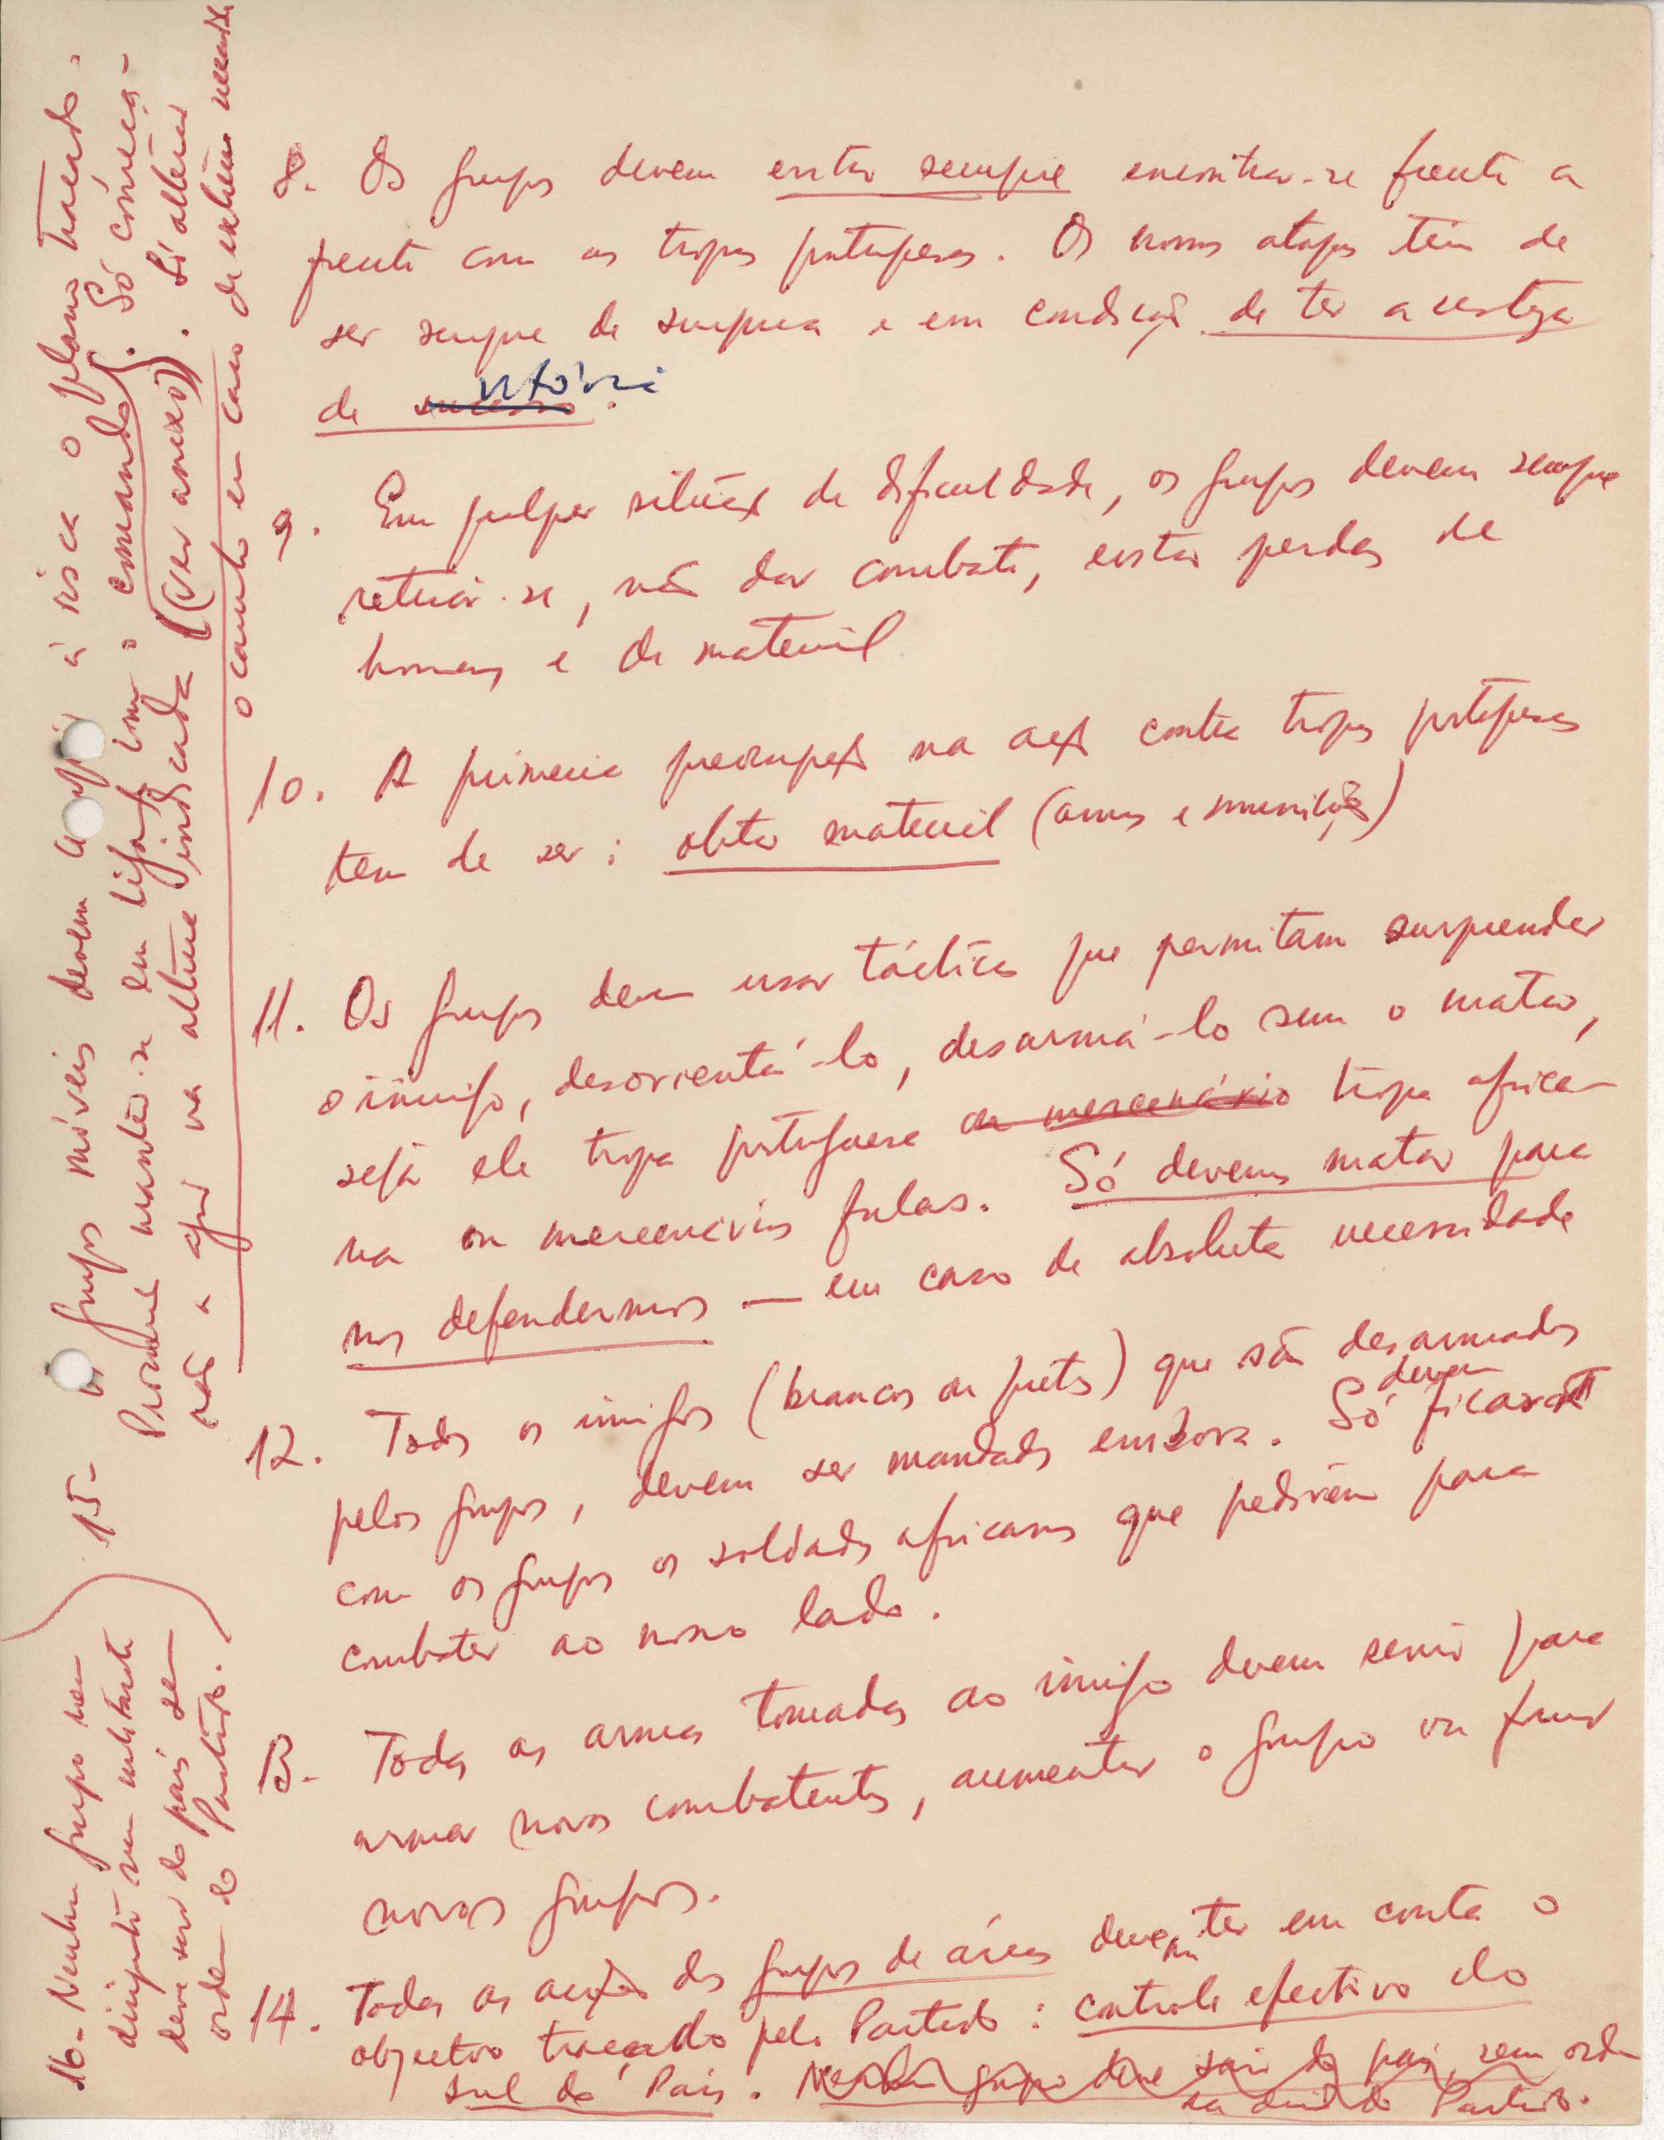 8. Os grupos devem evitar sempre encontrar-se frente a
frente com as tropas portuguesas. Os nossos ataques têm de
ser sempre de surpresa e em condições de ter a certeza
de sucesso vitória.
9. Em qualquer situação de dificuldade, os grupos devem sempre
retirar-se, não dar combate, evitar perdas de
homens e de material
10. A primeira preocupação na acção contra tropas portuguesas
tem de ser: obter material (armas e munições)
11. Os grupos devem usar tácticas que permitam surpreender
o inimigo, desorientá-lo, desarmá-lo sem o matar,
seja ele tropa portuguesa ou mercenário tropa africa-
na ou mercenários fulas. Só devemos matar para
nos defendermos — em caso de absoluta necessidade
12. Todos os inimigos (brancos ou pretos) que são desarmados
pelos grupos, devem ser mandados embora. Só devem ficar
com os grupos os soldados africanos que pedirem para
combater ao nosso lado.
13. Todas as armas tomadas ao inimigo devem servir para
armar novos combatentes, aumentar o grupo ou fazer
novos grupos.
14. Todas as acções dos grupos de áreas devem ter em conta o
objectivo traçado pelo Partido: controle efectivo do
sul do País. Nenhum grupo deve sair do país, sem ordem
da do Partido.
15- Os grupos móveis devem à risca o plano traçado.
Procurar manter-se em ligação com o comando. Só começa-
rão a agir na altura indicada (ver anexo). Só alterar
o caminho em caso de extrema necessidade
16- Nenhum grupo nem
dirigente nem militante
deve sair do país sem
ordem do Partido.